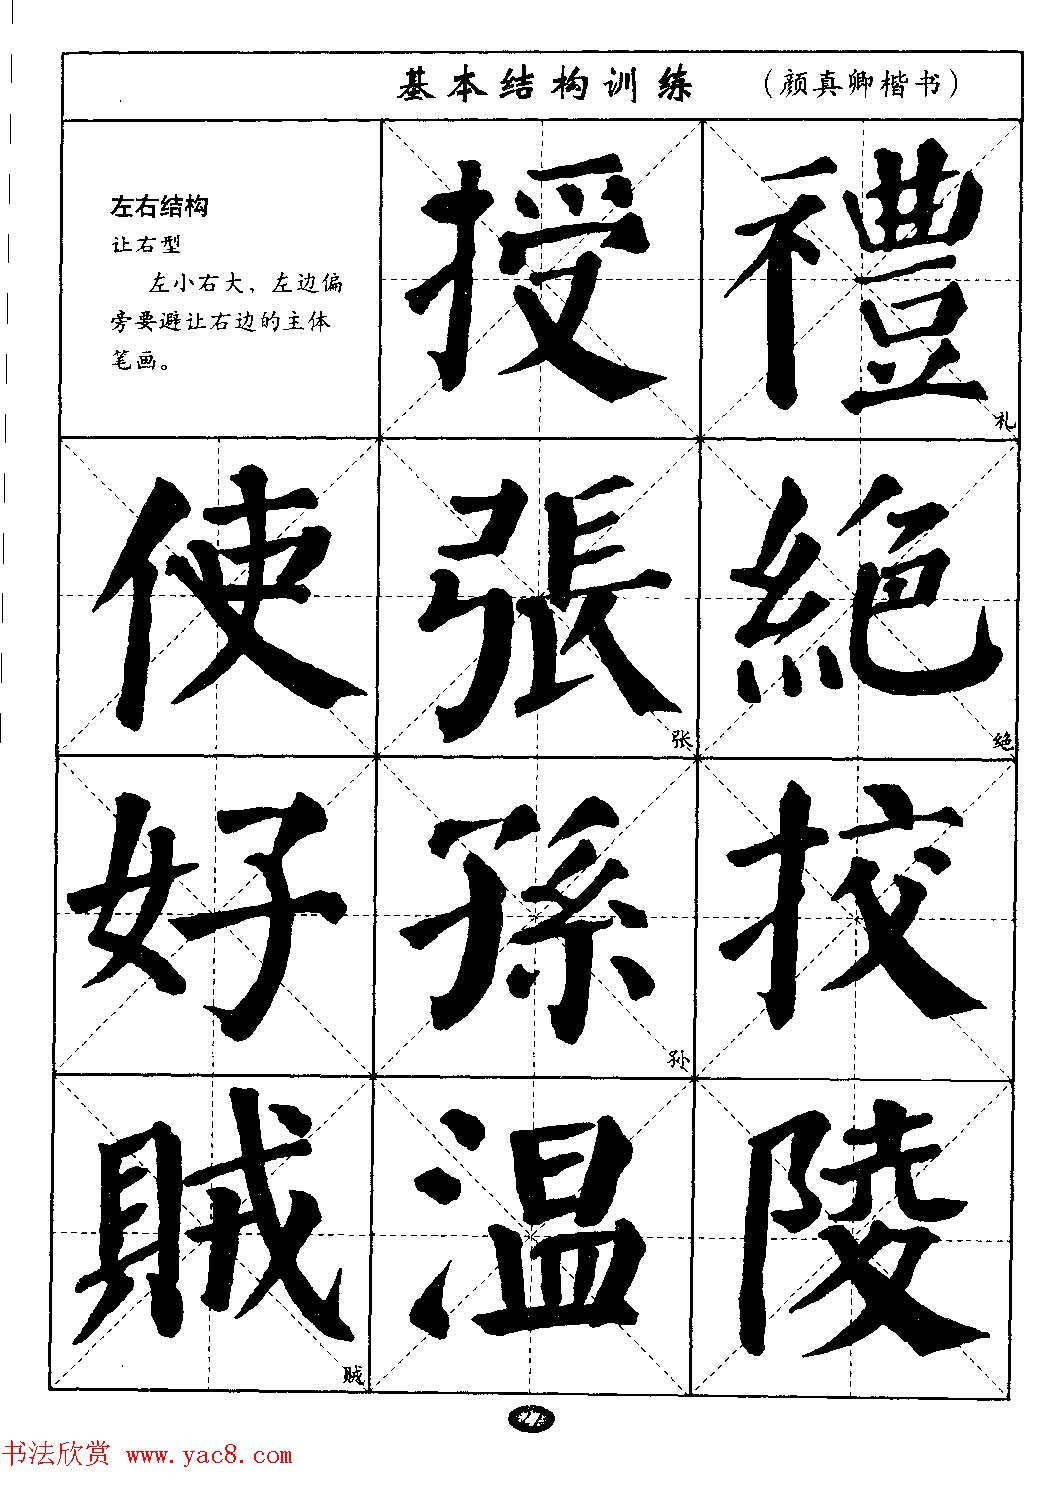 基本结构训练 （颜真卿楷书）
左右结构
让右型
左小右大，左边偏
旁要避让右边的主体
笔画。
授 禮 礼
使 張 张 絶 绝
好 孫 孙 挍
賊 贼 温 陵
27
书法欣赏 www.yac8.com